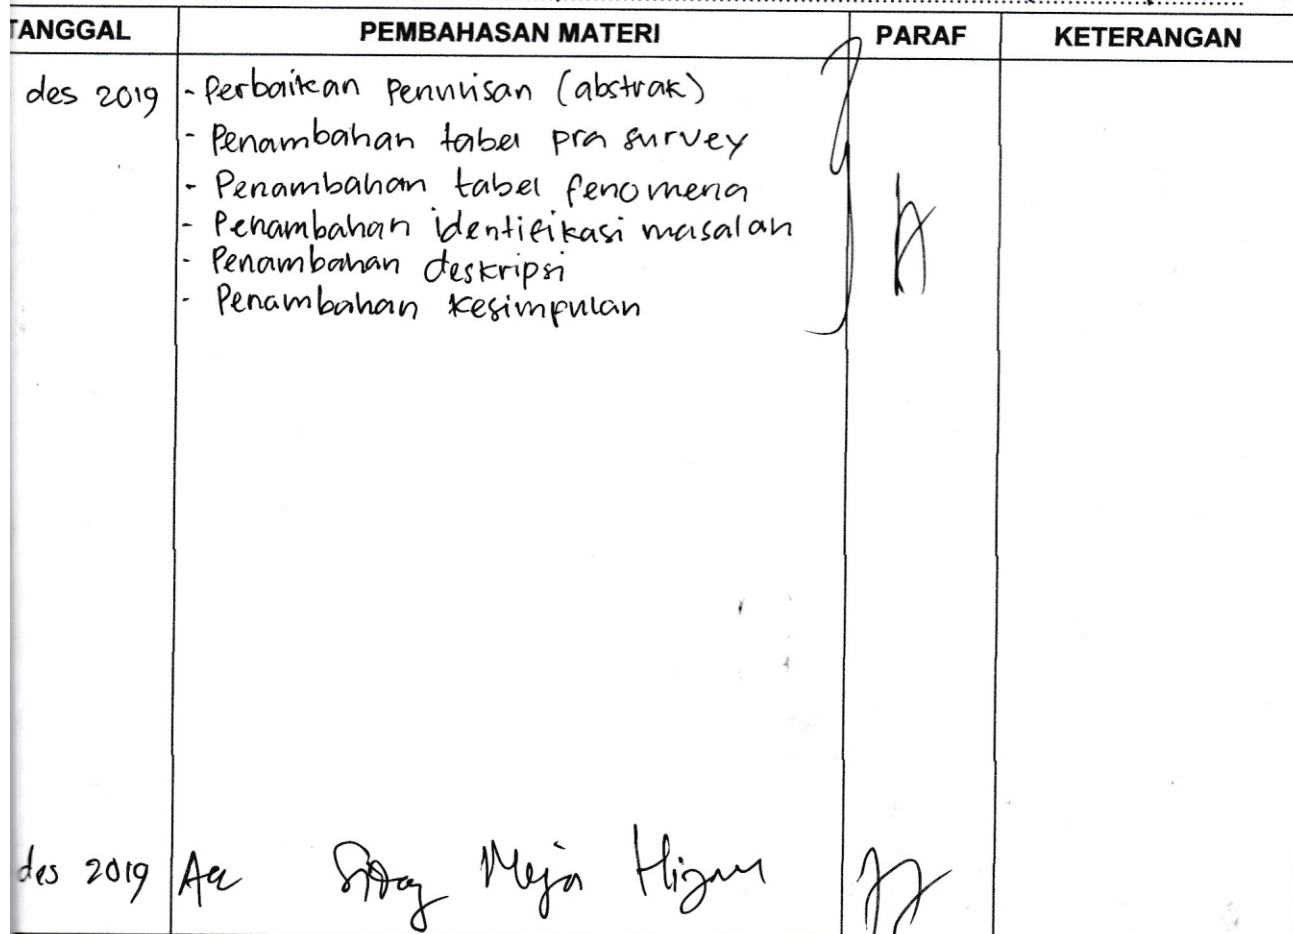 TANGGAL PEMBAHASAN MATERI PARAF KETERANGAN
des 2019 - Perbaikan Penulisan (abstrak)
- Penambahan tabel pra survey
- Penambahan tabel fenomena
- Penambahan identifikasi masalah
- Penambahan deskripsi
- Penambahan kesimpulan
des 2019 Acc Sidang Meja Hijau